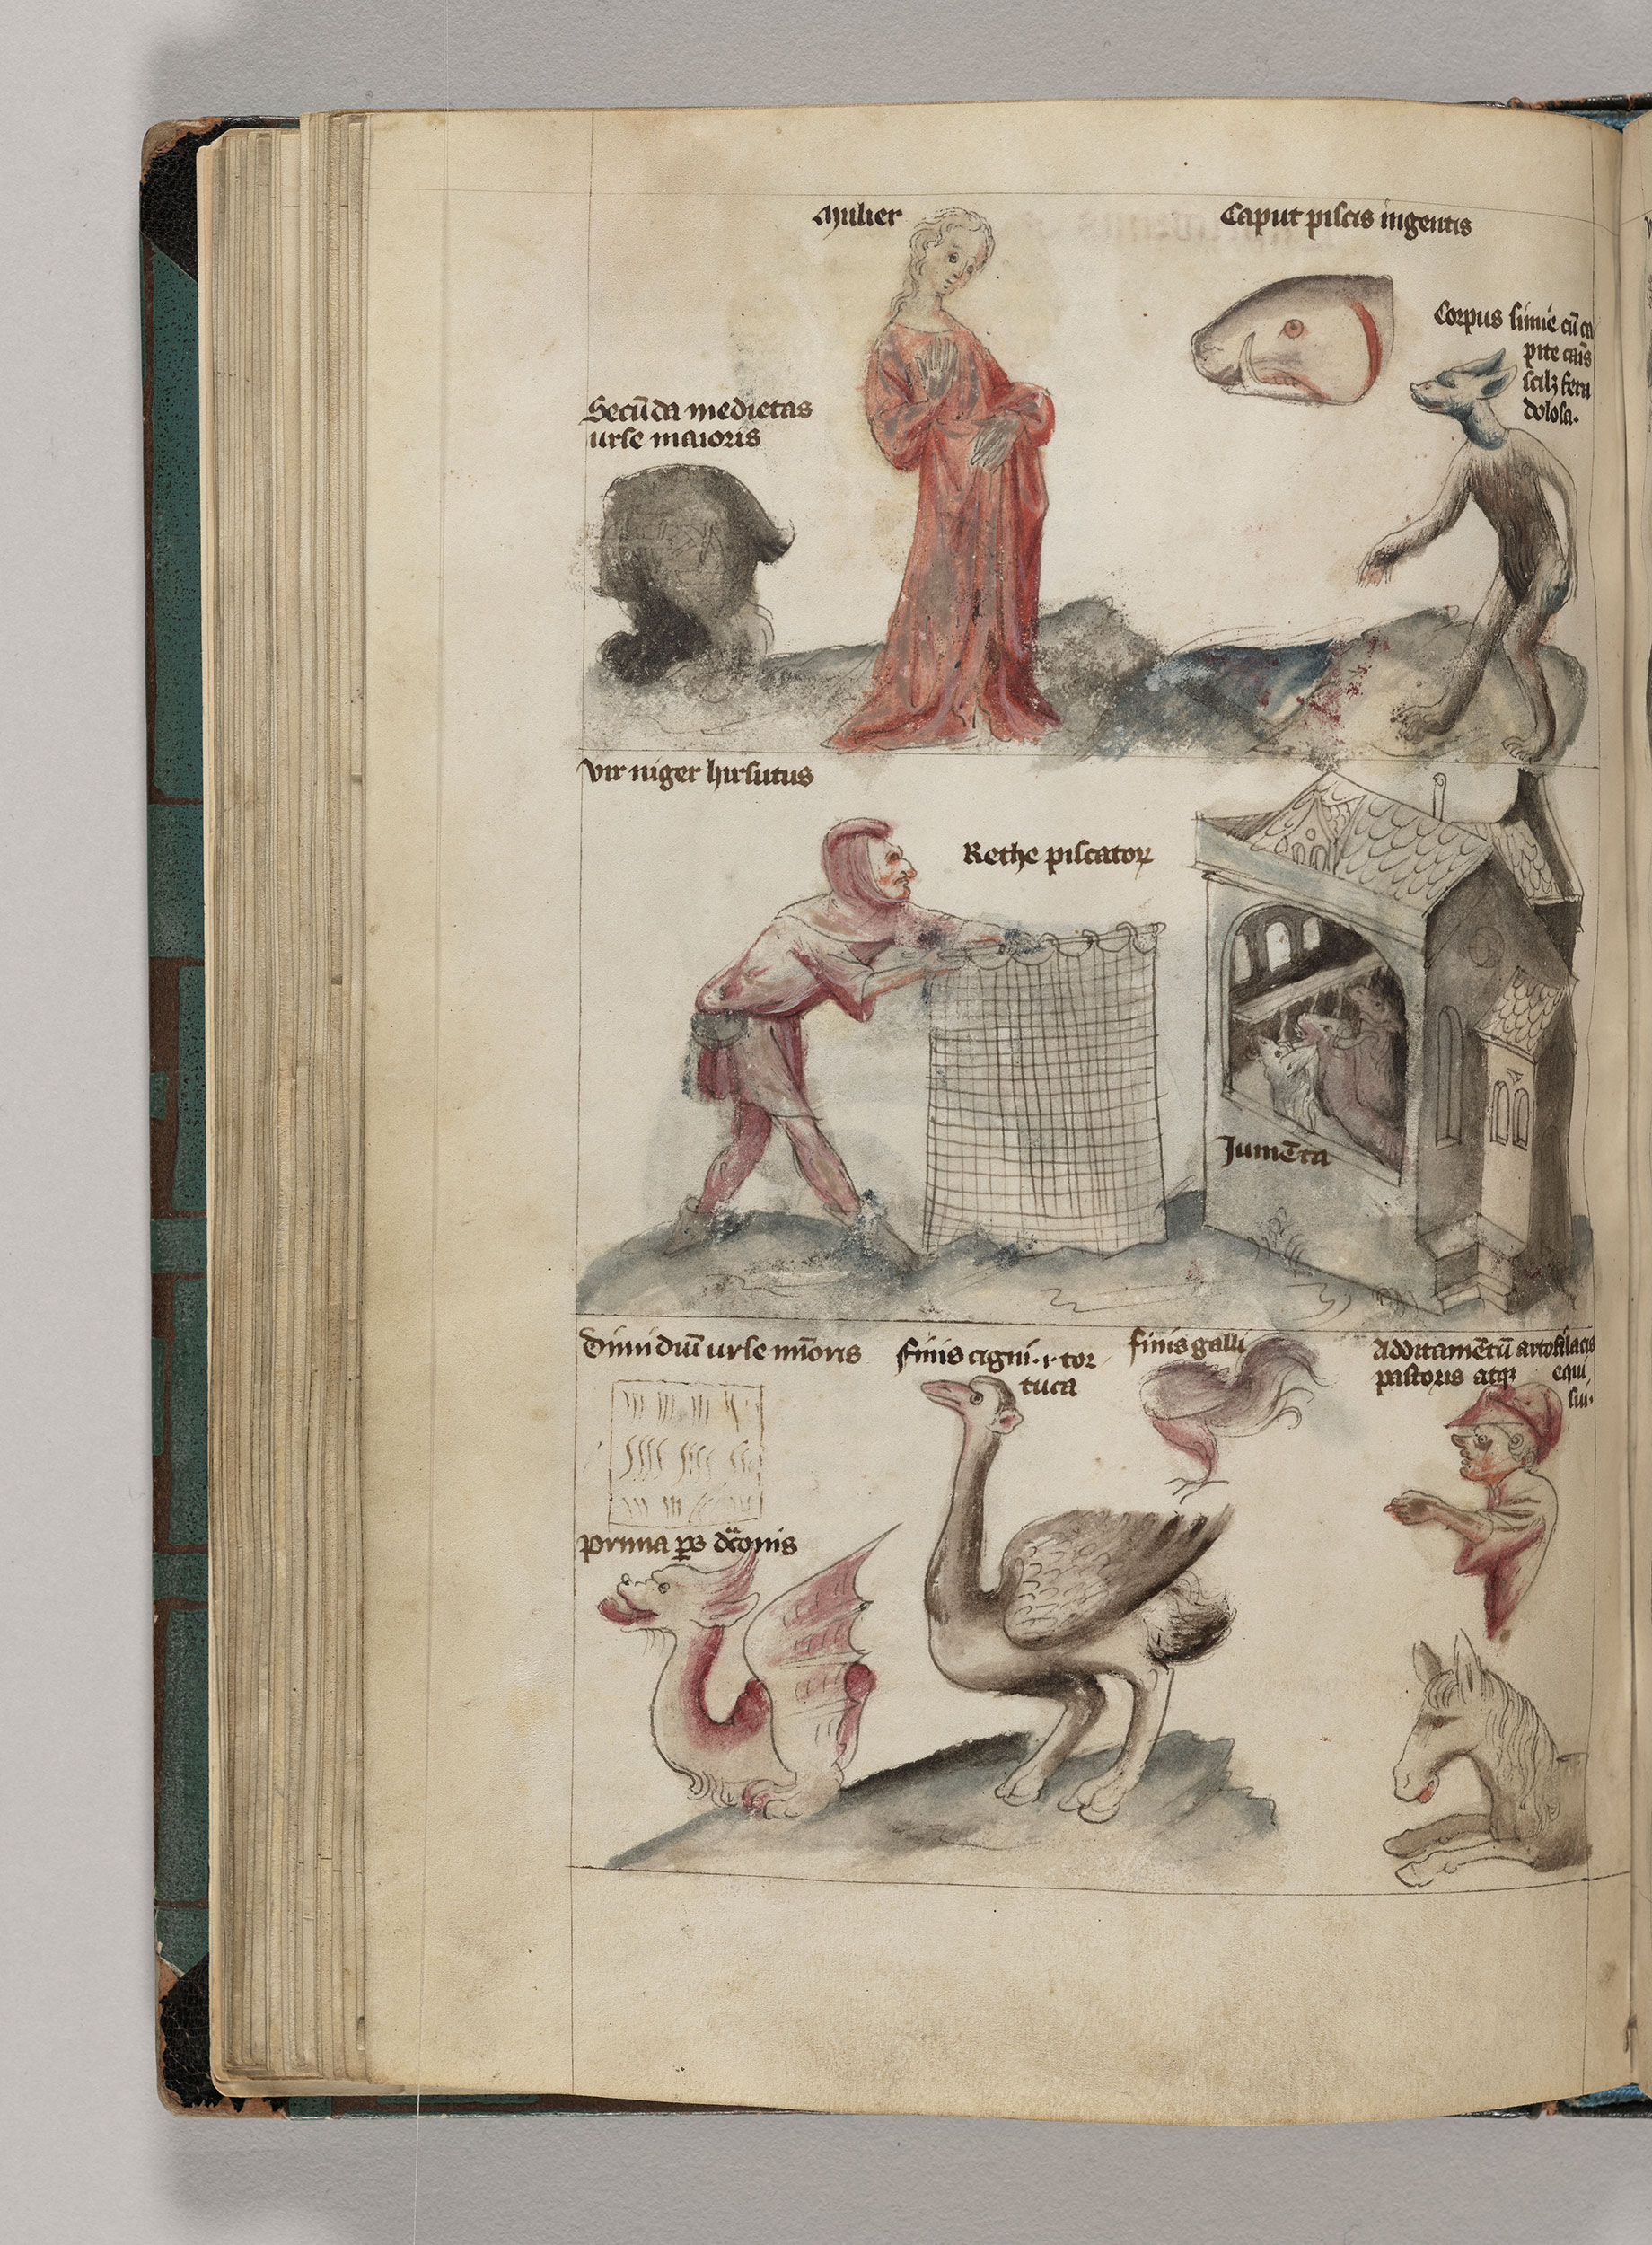 Mulier
Caput piscis ingentis
Corpus simie cū ca
pite cais
scilz fera
dolosa.
Secūda medietas
urse maioris
Vir niger hirsutus
Rethe piscatoꝝ
Jumēta
Dimidiū urse mīoris
finis cigni · r · tor
tuca
finis galli
Additamētū artofilacis
pastoris atqꝫ equi
sui.
prima ꝑs dͣconis